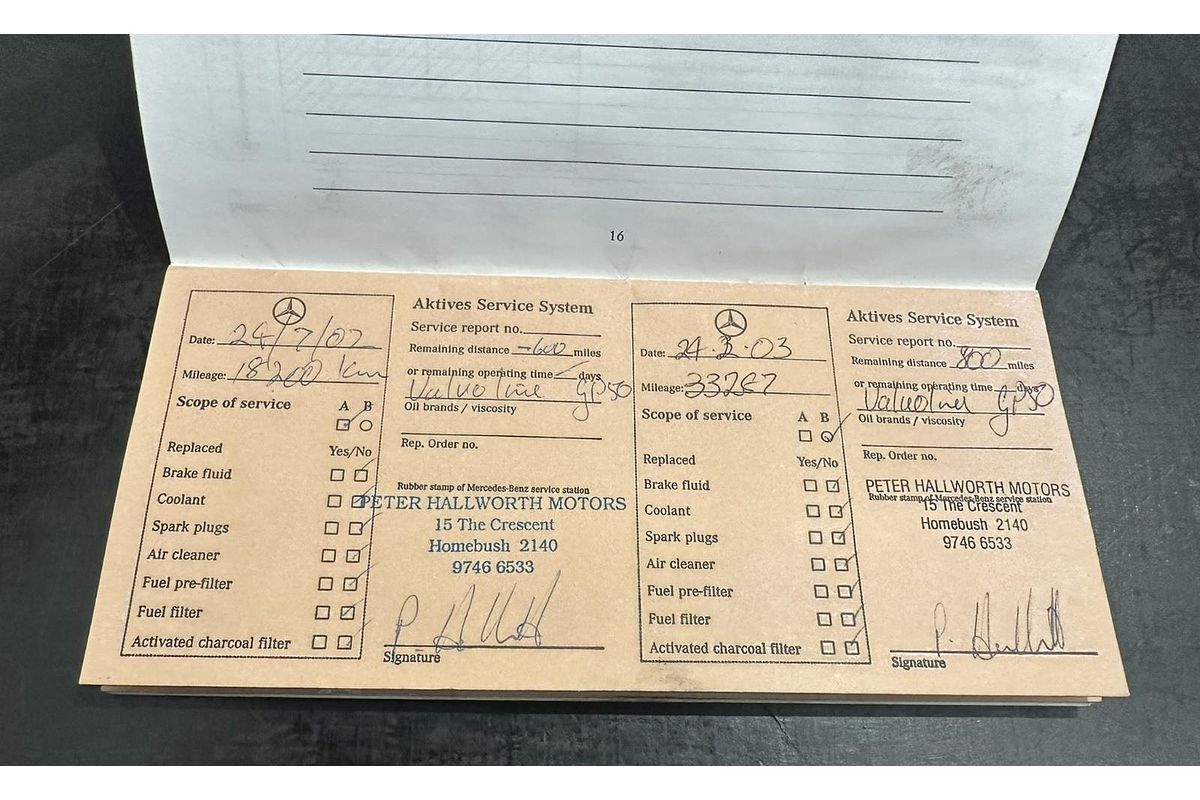 16
Date: 24/7/02
Mileage: 18200 km
Scope of service A B
Replaced Yes/No
Brake fluid
Coolant
Spark plugs
Air cleaner
Fuel pre-filter
Fuel filter
Activated charcoal filter
Aktives Service System
Service report no.
Remaining distance -600 miles
or remaining operating time days
Valvoline GP50
Oil brands / viscosity
Rep. Order no.
Rubber stamp of Mercedes-Benz service station
PETER HALLWORTH MOTORS
15 The Crescent
Homebush 2140
9746 6533
Signature
Date: 03
Mileage: 33267
Scope of service A B
Replaced Yes/No
Brake fluid
Coolant
Spark plugs
Air cleaner
Fuel pre-filter
Fuel filter
Activated charcoal filter
Aktives Service System
Service report no.
Remaining distance 800 miles
or remaining operating time days
GP50
Oil brands / viscosity
Rep. Order no.
PETER HALLWORTH MOTORS
Rubber stamp of Mercedes-Benz service station
15 The Crescent
Homebush 2140
9746 6533
Signature